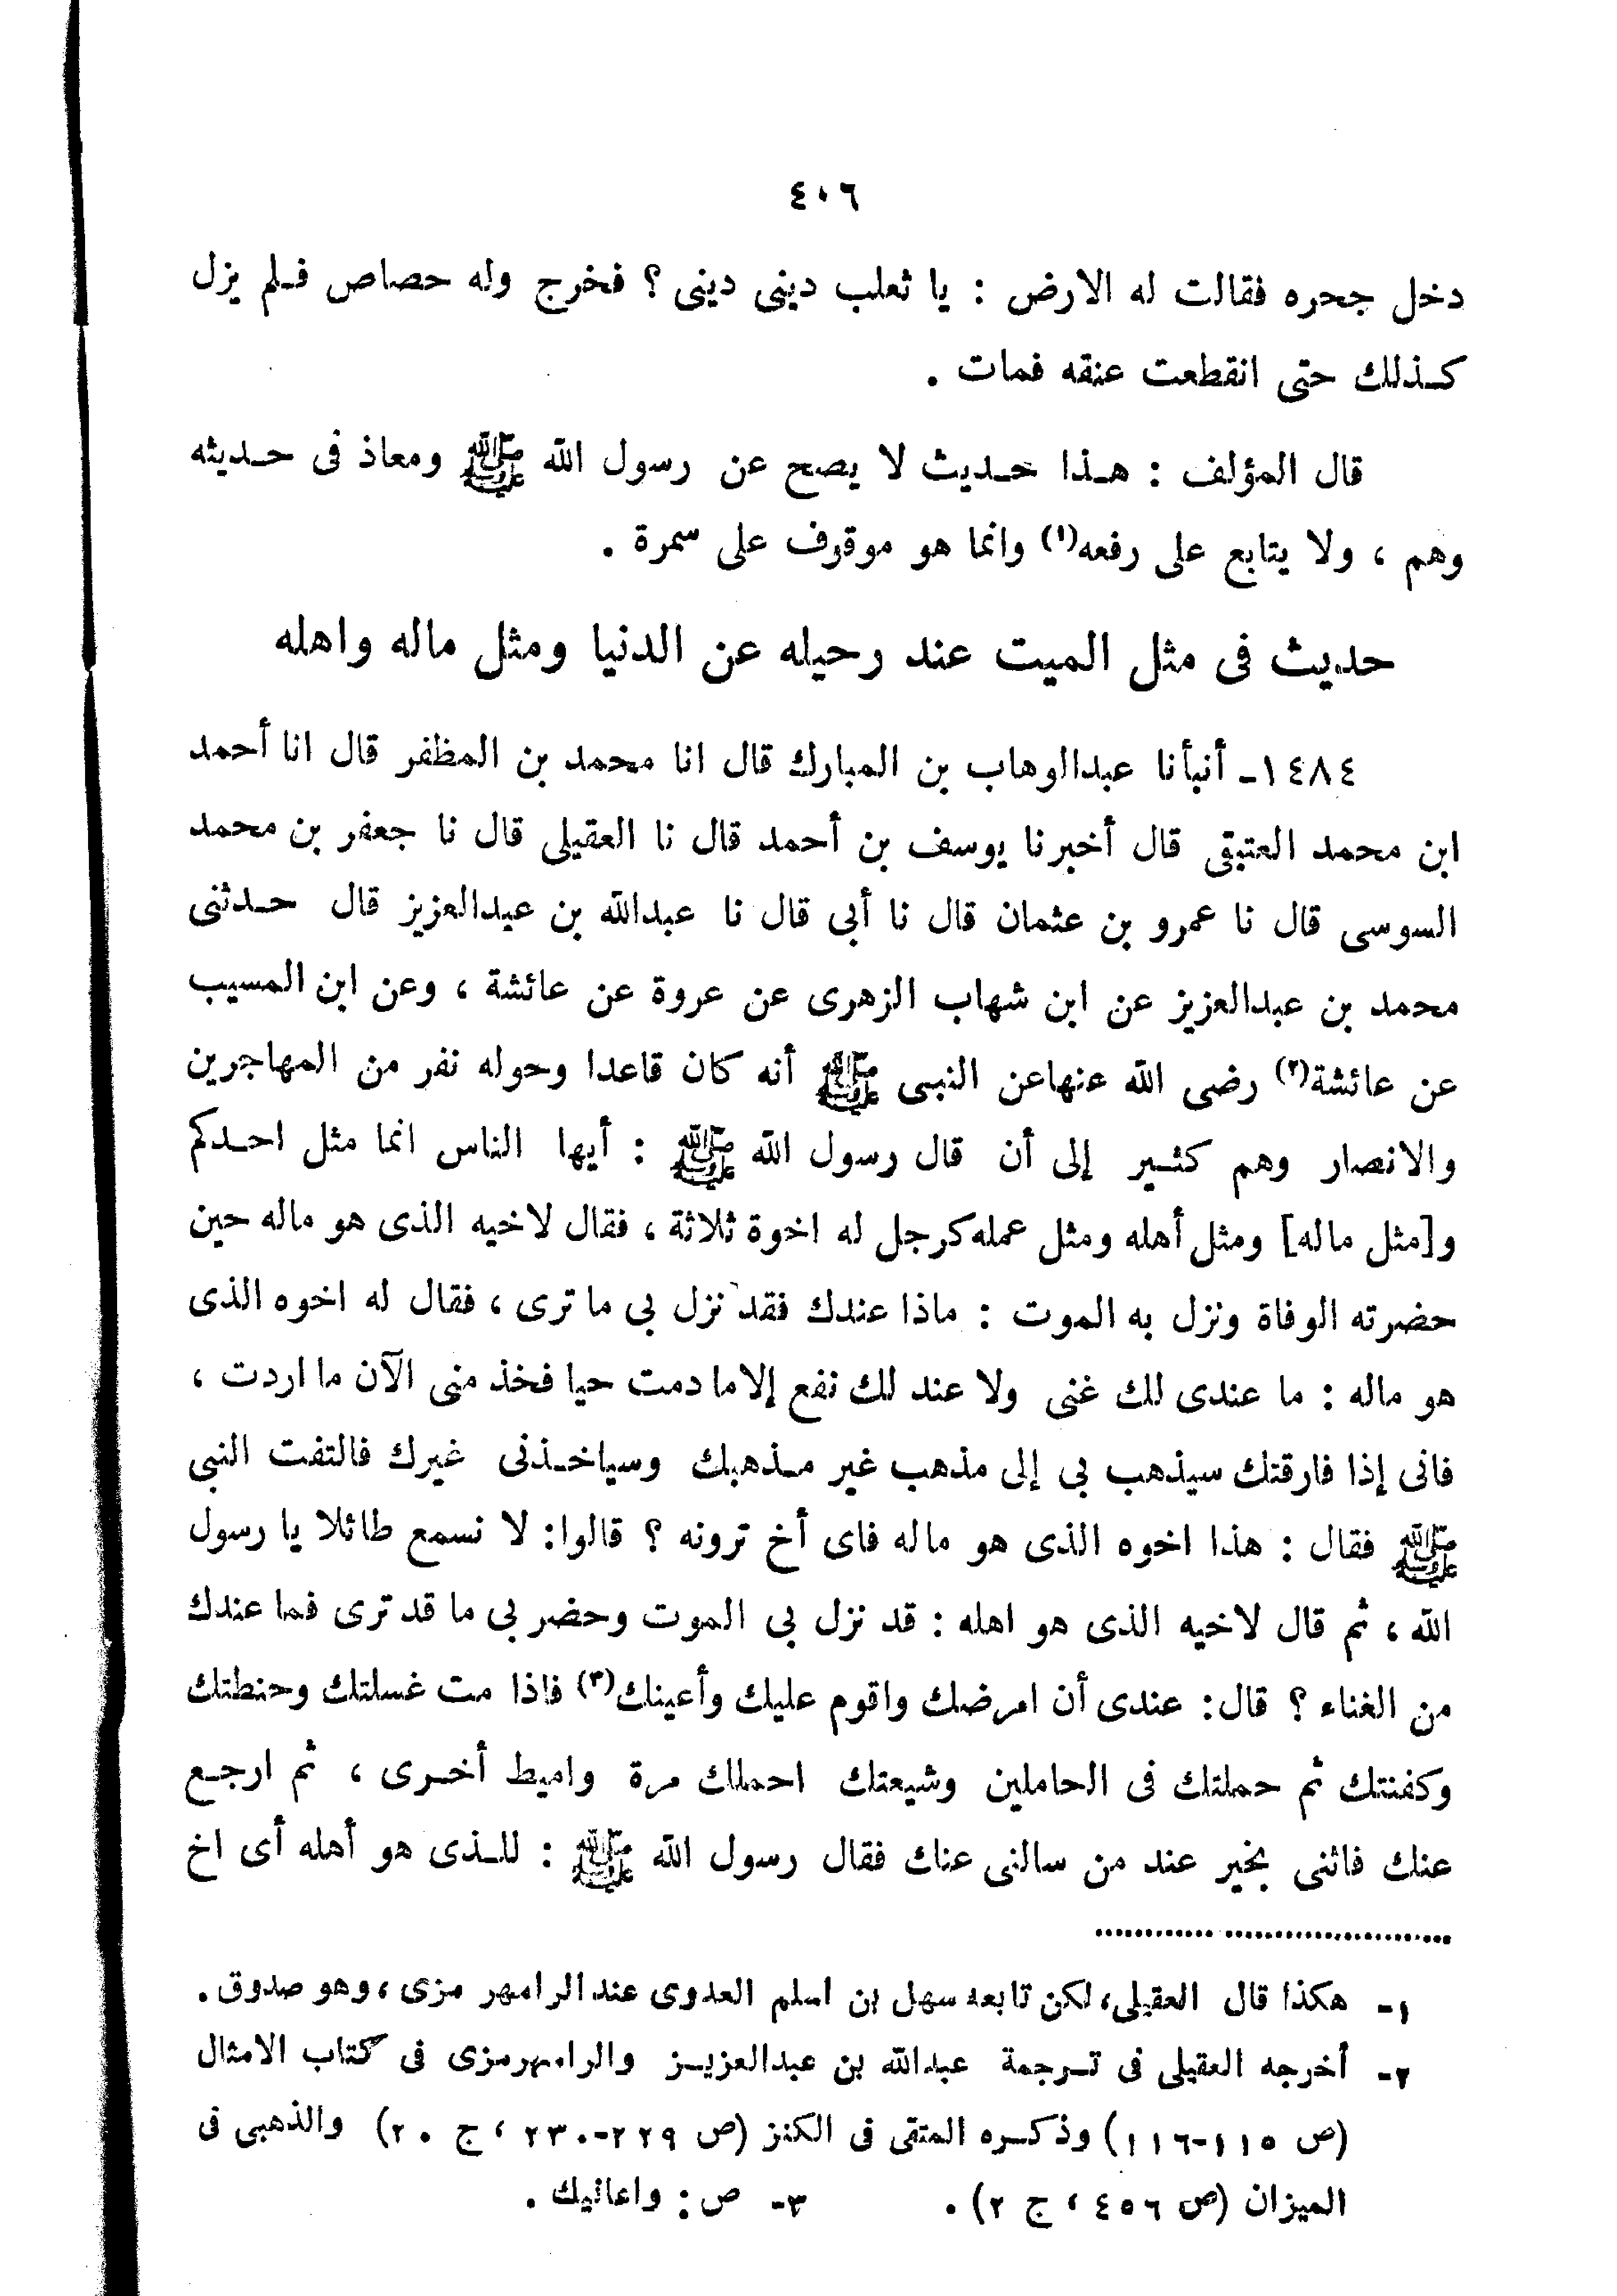 ٤٠٦
دخل جحره فقالت له الارض : يا ثعلب دينى دينى ؟ فخرج وله حصاص فلم يزل
كذلك حتى انقطعت عنقه فمات .
قال المؤلف : هذا حديث لا يصح عن رسول الله ﷺ ومعاذ فى حديثه
وهم ، ولا يتابع على رفعه(١) وانما هو موقوف على سمرة .
حديث فى مثل الميت عند رحيله عن الدنيا ومثل ماله واهله
١٤٨٤- أنبأنا عبدالوهاب بن المبارك قال انا محمد بن المظفر قال انا أحمد
ابن محمد العتيقى قال أخبرنا يوسف بن أحمد قال نا العقيلى قال نا جعفر بن محمد
السوسى قال نا عمرو بن عثمان قال نا أبى قال نا عبدالله بن عبدالعزيز قال حدثنى
محمد بن عبدالعزيز عن ابن شهاب الزهرى عن عروة عن عائشة ، وعن ابن المسيب
عن عائشة(٢) رضى الله عنهاعن النبى ﷺ أنه كان قاعدا وحوله نفر من المهاجرين
والانصار وهم كثير إلى أن قال رسول الله ﷺ : أيها الناس انما مثل احدكم
و[مثل ماله] ومثل أهله ومثل عمله كرجل له اخوة ثلاثة ، فقال لاخيه الذى هو ماله حين
حضرته الوفاة ونزل به الموت : ماذا عندك فقد نزل بى ما ترى ، فقال له اخوه الذى
هو ماله : ما عندى لك غنى ولا عند لك نفع إلا ما دمت حيا فخذ منى الآن ما اردت ،
فانى إذا فارقتك سيذهب بى إلى مذهب غير مذهبك وسياخذنى غيرك فالتفت النبى
ﷺ فقال : هذا اخوه الذى هو ماله فاى أخ ترونه ؟ قالوا: لا نسمع طائلا يا رسول
الله ، ثم قال لاخيه الذى هو اهله : قد نزل بى الموت وحضر بى ما قد ترى فما عندك
من الغناء ؟ قال: عندى أن امرضك واقوم عليك وأعينك(٣) فاذا مت غسلتك وحنطتك
وكفنتك ثم حملتك فى الحاملين وشيعتك احملك مرة واميط أخرى ، ثم ارجع
عنك فاثنى بخير عند من سالنى عنك فقال رسول الله ﷺ : للذى هو أهله أى اخ
١- هكذا قال العقيلى، لكن تابعه سهل بن اسلم العدوى عند الرامهر مزى ، وهو صدوق .
٢- أخرجه العقيلى فى ترجمة عبدالله بن عبدالعزيز والرامهرمزى فى كتاب الامثال
(ص ١١٥-١١٦) وذكره المتقى فى الكنز (ص ٢٢٩-٢٣٠ ، ج ٢٠) والذهبى فى
الميزان (ص ٤٥٦ ، ج ٢) . ٣- ص : واعانيك .